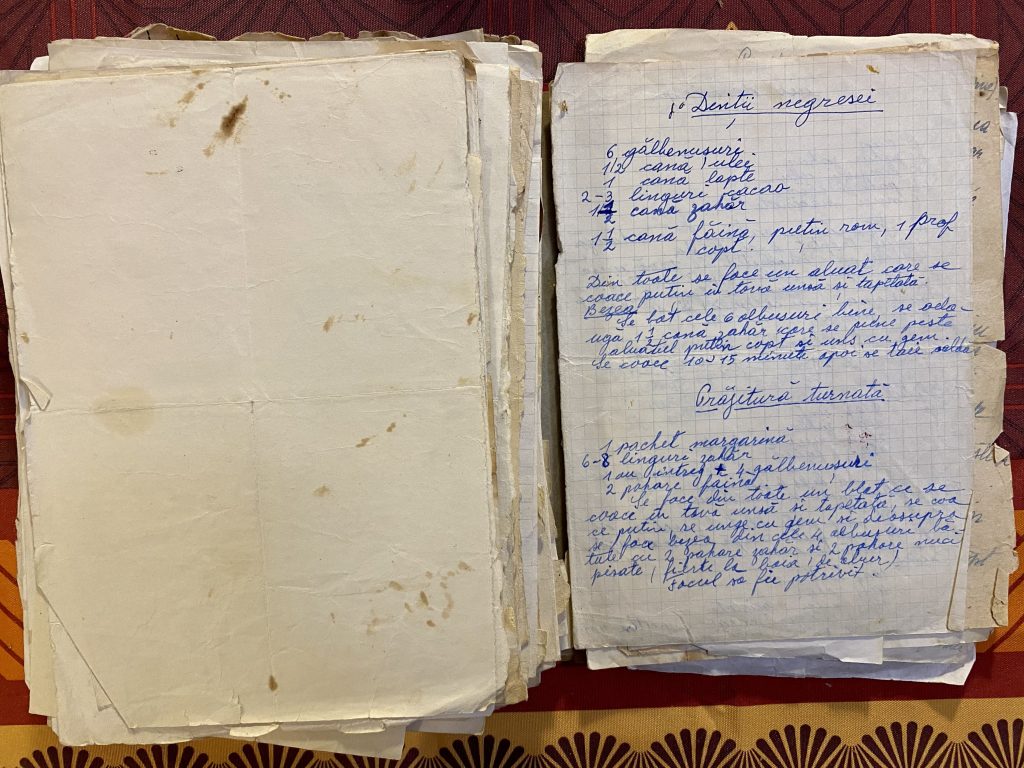 1° Dinții negresei
6 gălbenușuri
1/2 cană ulei
1 cană lapte
2-3 linguri cacao
1 1/2 cană zahăr
1 1/2 cană făină, puțin rom, 1 praf
copt.
Din toate se face un aluat care se
coace puțin în tavă unsă și tapetată.
Bezea
Se bat cele 6 albușuri bine, se ada-
ugă 1 1/2 cană zahăr care se pune peste
aluatul puțin copt și uns cu gem.
Se coace 10-15 minute apoi se taie
Prăjitură turnată
1 pachet margarină
6-8 linguri zahăr
1 ou întreg + 4 gălbenușuri
2 pahare făină
Se face din toate un blat ce se
coace în tavă unsă și tapetată, se coa
ce puțin, se unge cu gem și deasupra
se face bezea din cele 4 albușuri bă-
tute cu 2 pahare zahăr și 2 pahare nuci
pisate (fierte la
Focul să fie potrivit.